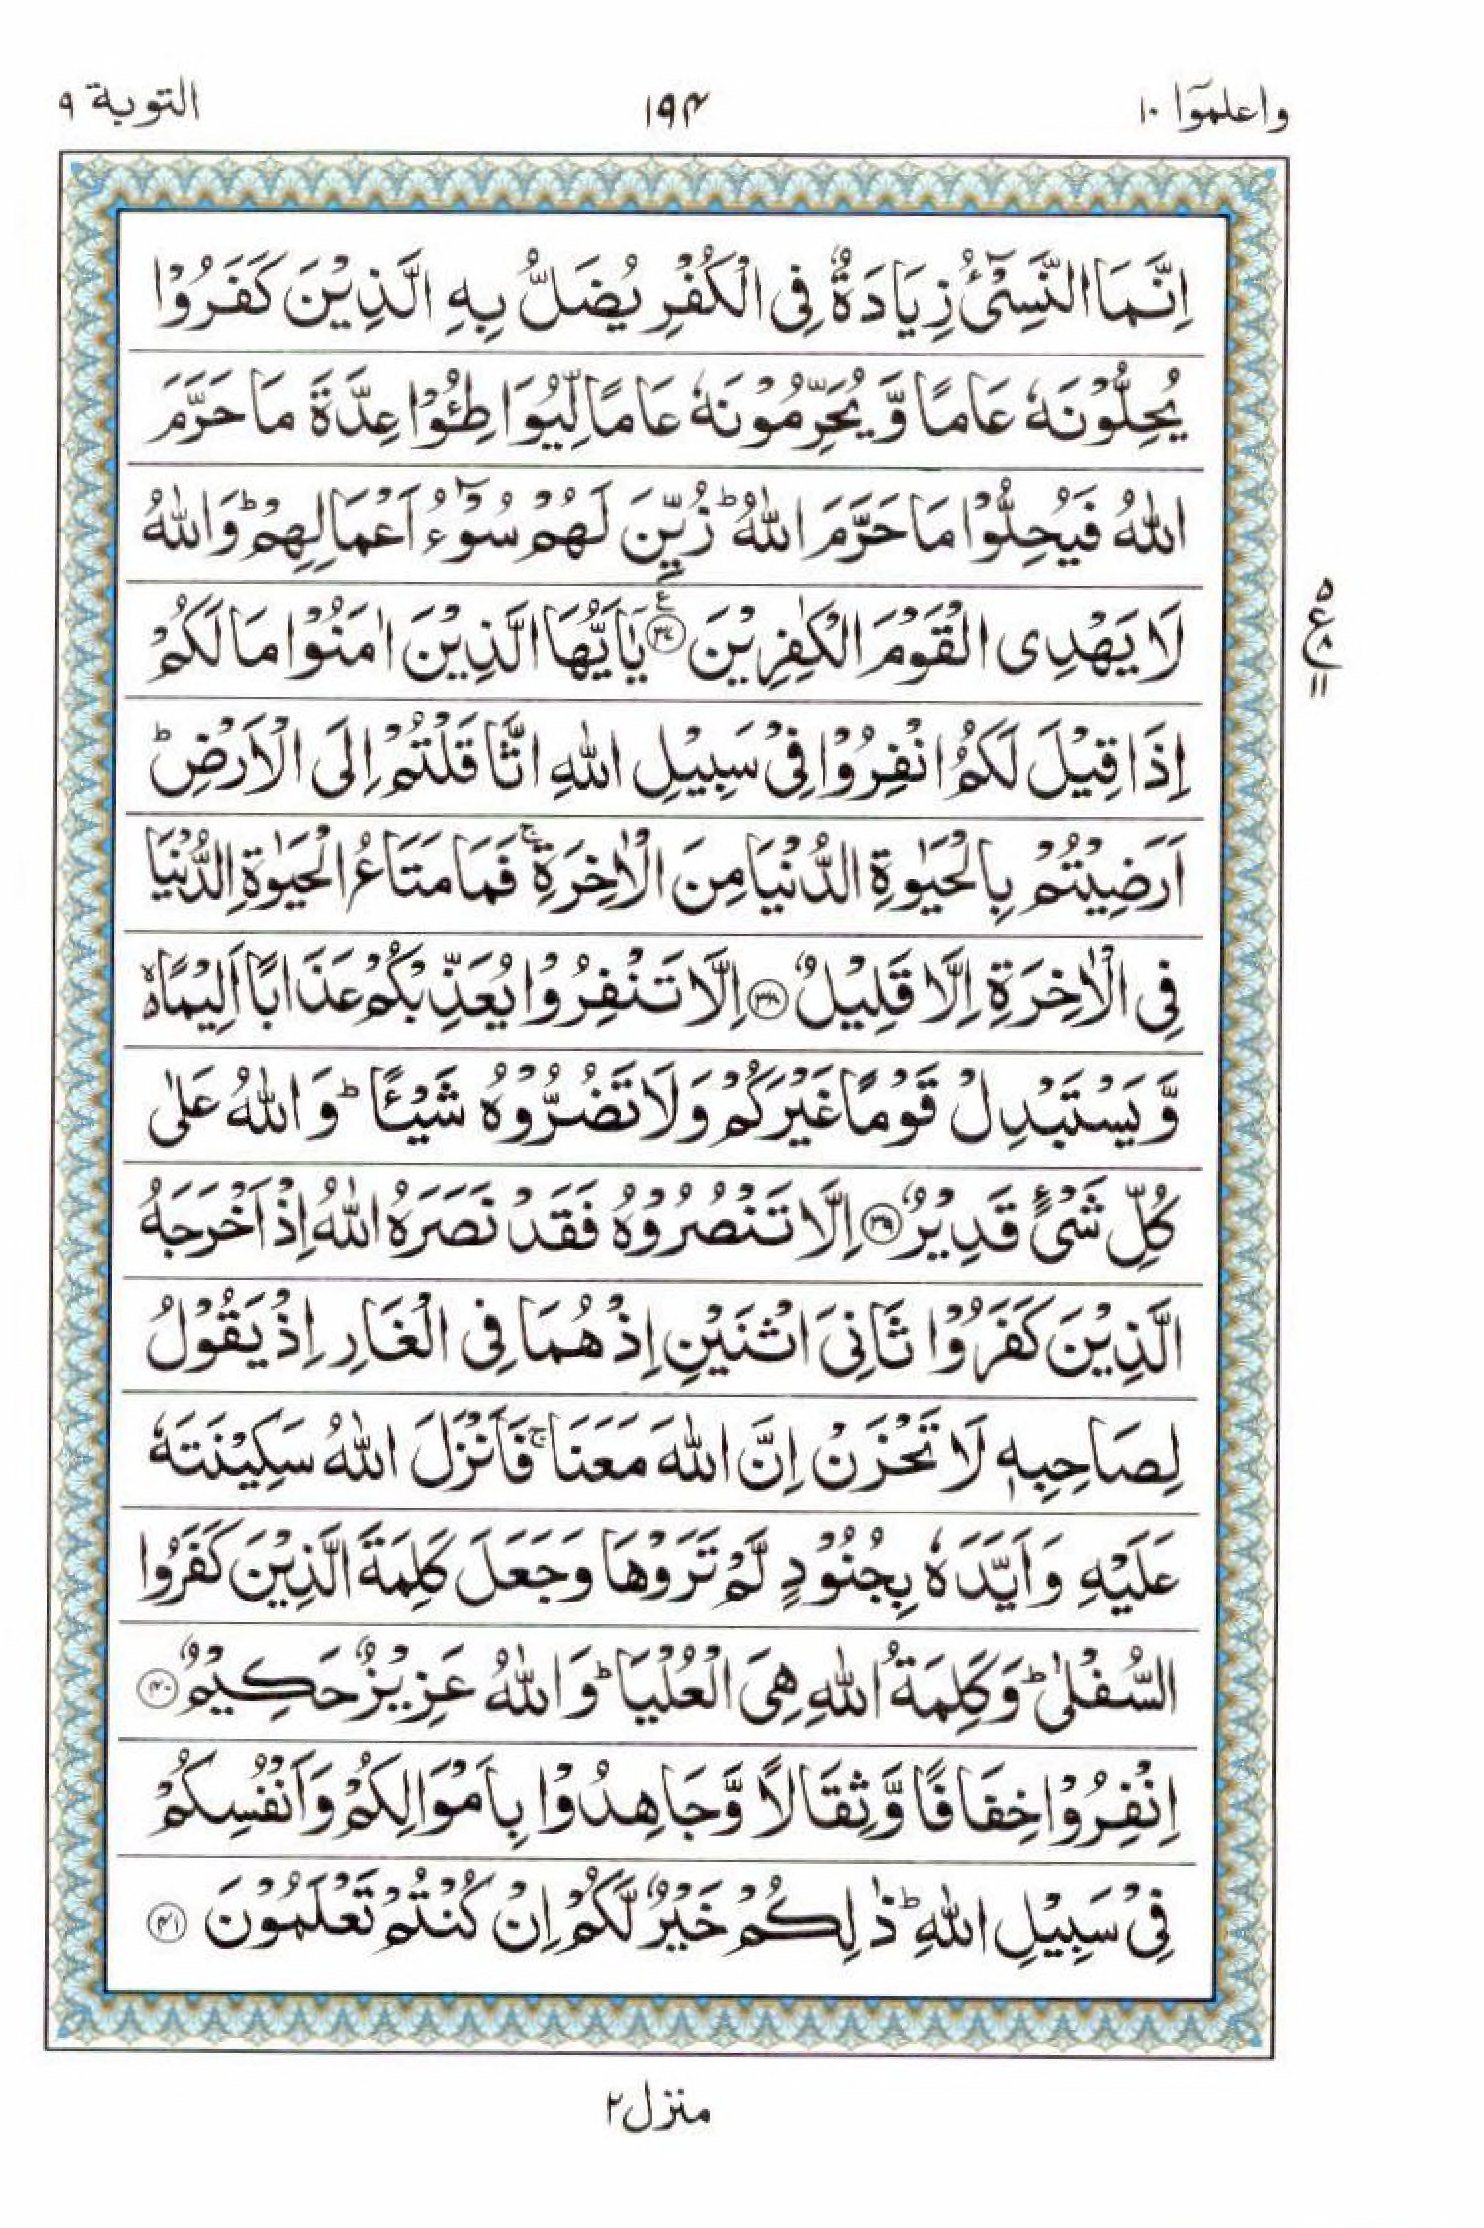 واعلموٓا ۱۰
۱۹۴
التوبة ۹
اِنَّمَا النَّسِیْٓءُ زِیَادَةٌ فِی الْكُفْرِ یُضَلُّ بِهِ الَّذِیْنَ كَفَرُوْا
یُحِلُّوْنَهٗ عَامًا وَّ یُحَرِّمُوْنَهٗ عَامًا لِّیُوَاطِـُٔوْا عِدَّةَ مَا حَرَّمَ
اللّٰهُ فَیُحِلُّوْا مَا حَرَّمَ اللّٰهُ ؕ زُیِّنَ لَهُمْ سُوْٓءُ اَعْمَالِهِمْ ؕ وَ اللّٰهُ
لَا یَهْدِی الْقَوْمَ الْكٰفِرِیْنَ ۳۷ ع یٰۤاَیُّهَا الَّذِیْنَ اٰمَنُوْا مَا لَكُمْ
اِذَا قِیْلَ لَكُمُ انْفِرُوْا فِیْ سَبِیْلِ اللّٰهِ اثَّاقَلْتُمْ اِلَی الْاَرْضِ ؕ
اَرَضِیْتُمْ بِالْحَیٰوةِ الدُّنْیَا مِنَ الْاٰخِرَةِ ۚ فَمَا مَتَاعُ الْحَیٰوةِ الدُّنْیَا
فِی الْاٰخِرَةِ اِلَّا قَلِیْلٌ ۳۸ اِلَّا تَنْفِرُوْا یُعَذِّبْكُمْ عَذَابًا اَلِیْمًا ۙ۬
وَّ یَسْتَبْدِلْ قَوْمًا غَیْرَكُمْ وَ لَا تَضُرُّوْهُ شَیْـًٔا ؕ وَ اللّٰهُ عَلٰی
كُلِّ شَیْءٍ قَدِیْرٌ ۳۹ اِلَّا تَنْصُرُوْهُ فَقَدْ نَصَرَهُ اللّٰهُ اِذْ اَخْرَجَهُ
الَّذِیْنَ كَفَرُوْا ثَانِیَ اثْنَیْنِ اِذْ هُمَا فِی الْغَارِ اِذْ یَقُوْلُ
لِصَاحِبِهٖ لَا تَحْزَنْ اِنَّ اللّٰهَ مَعَنَا ۚ فَاَنْزَلَ اللّٰهُ سَكِیْنَتَهٗ
عَلَیْهِ وَ اَیَّدَهٗ بِجُنُوْدٍ لَّمْ تَرَوْهَا وَ جَعَلَ كَلِمَةَ الَّذِیْنَ كَفَرُوا
السُّفْلٰی ؕ وَ كَلِمَةُ اللّٰهِ هِیَ الْعُلْیَا ؕ وَ اللّٰهُ عَزِیْزٌ حَكِیْمٌ ۴۰
اِنْفِرُوْا خِفَافًا وَّ ثِقَالًا وَّ جَاهِدُوْا بِاَمْوَالِكُمْ وَ اَنْفُسِكُمْ
فِیْ سَبِیْلِ اللّٰهِ ؕ ذٰلِكُمْ خَیْرٌ لَّكُمْ اِنْ كُنْتُمْ تَعْلَمُوْنَ ۴۱
۵
ع ۸
۱۱
منزل ۲